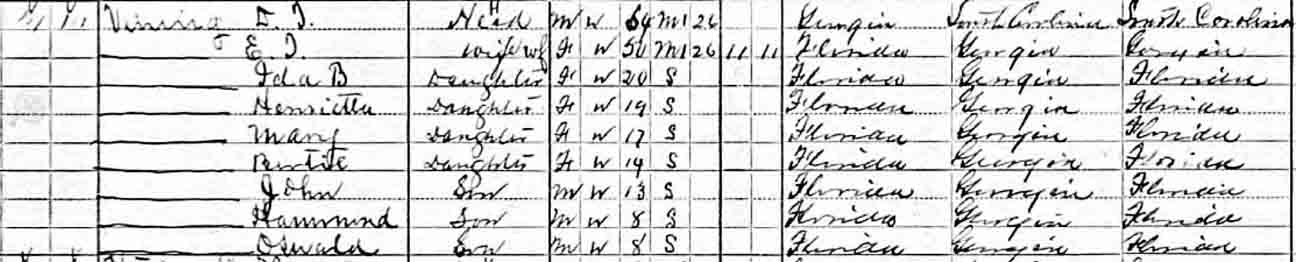 Vining D. J. Head M W 54 M1 26 Georgia South Carolina South Carolina
E. J. Wife F W 50 M1 26 11 11 Florida Georgia Georgia
Ida B Daughter F W 20 S Florida Georgia Florida
Henrietta Daughter F W 19 S Florida Georgia Florida
Mary Daughter F W 17 S Florida Georgia Florida
Daughter F W 14 S Florida Georgia Florida
John Son M W 13 S Florida Georgia Florida
Hammond Son M W 8 S Florida Georgia Florida
Oswald Son M W 8 S Florida Georgia Florida